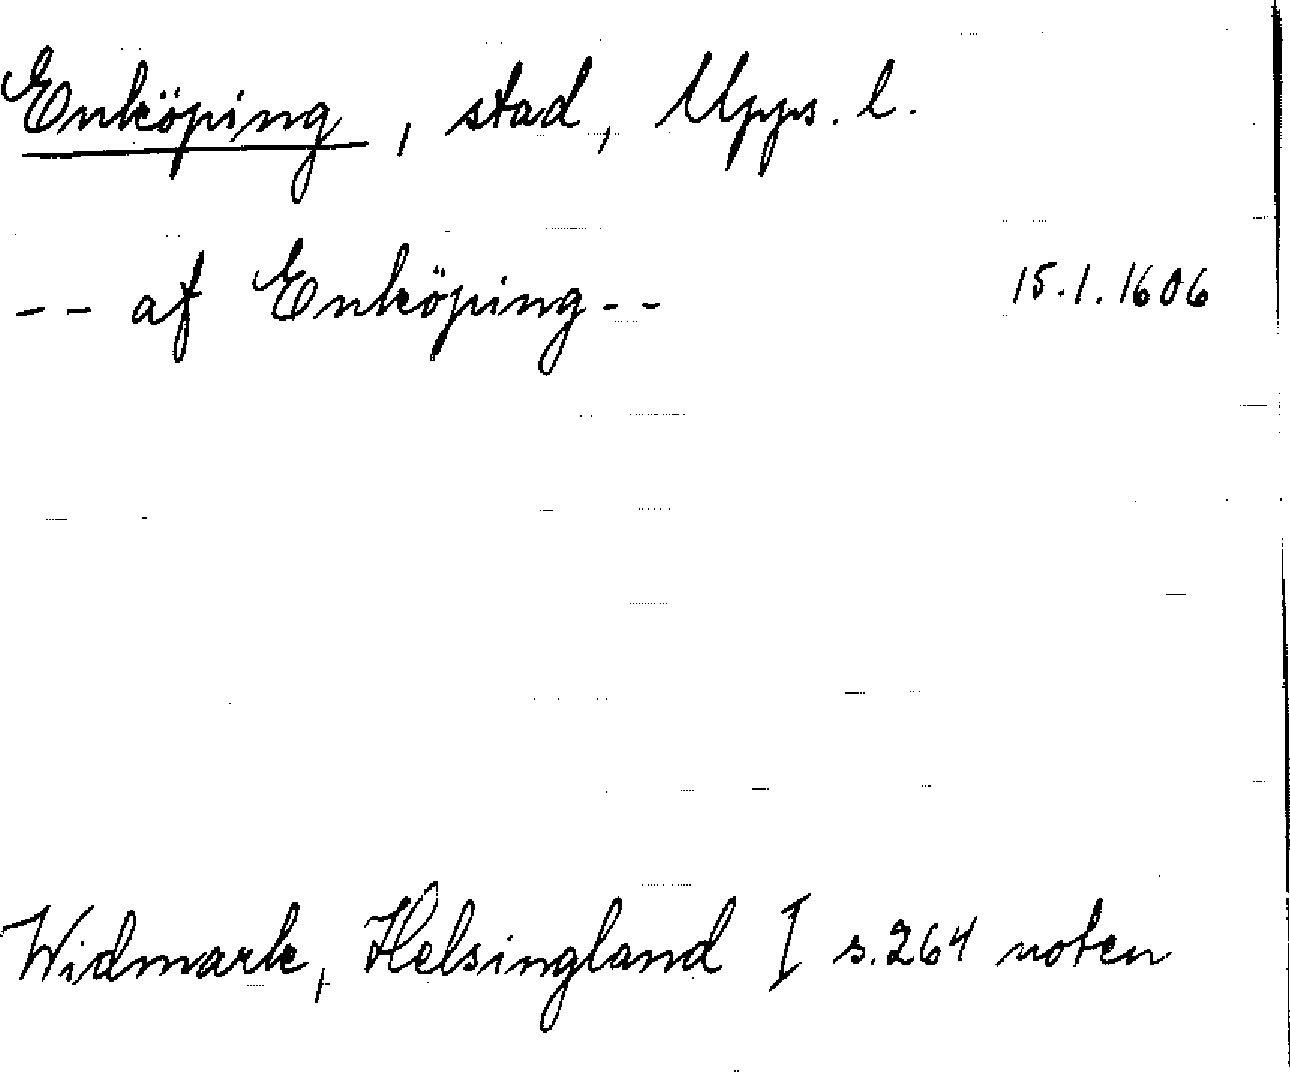 Enköping, stad, Upps. l.
-- af Enköping-- 15.1.1606
Widmark, Helsingland I s. 264 noten